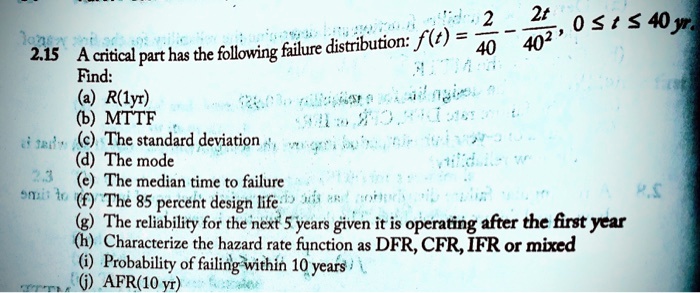 2.15 A critical part has the following failure distribution: f(t) = 2/40 − 2t/40², 0 ≤ t ≤ 40 yr.
Find:
(a) R(1yr)
(b) MTTF
(c) The standard deviation
(d) The mode
(e) The median time to failure
(f) The 85 percent design life
(g) The reliability for the next 5 years given it is operating after the first year
(h) Characterize the hazard rate function as DFR, CFR, IFR or mixed
(i) Probability of failing within 10 years
(j) AFR(10 yr)